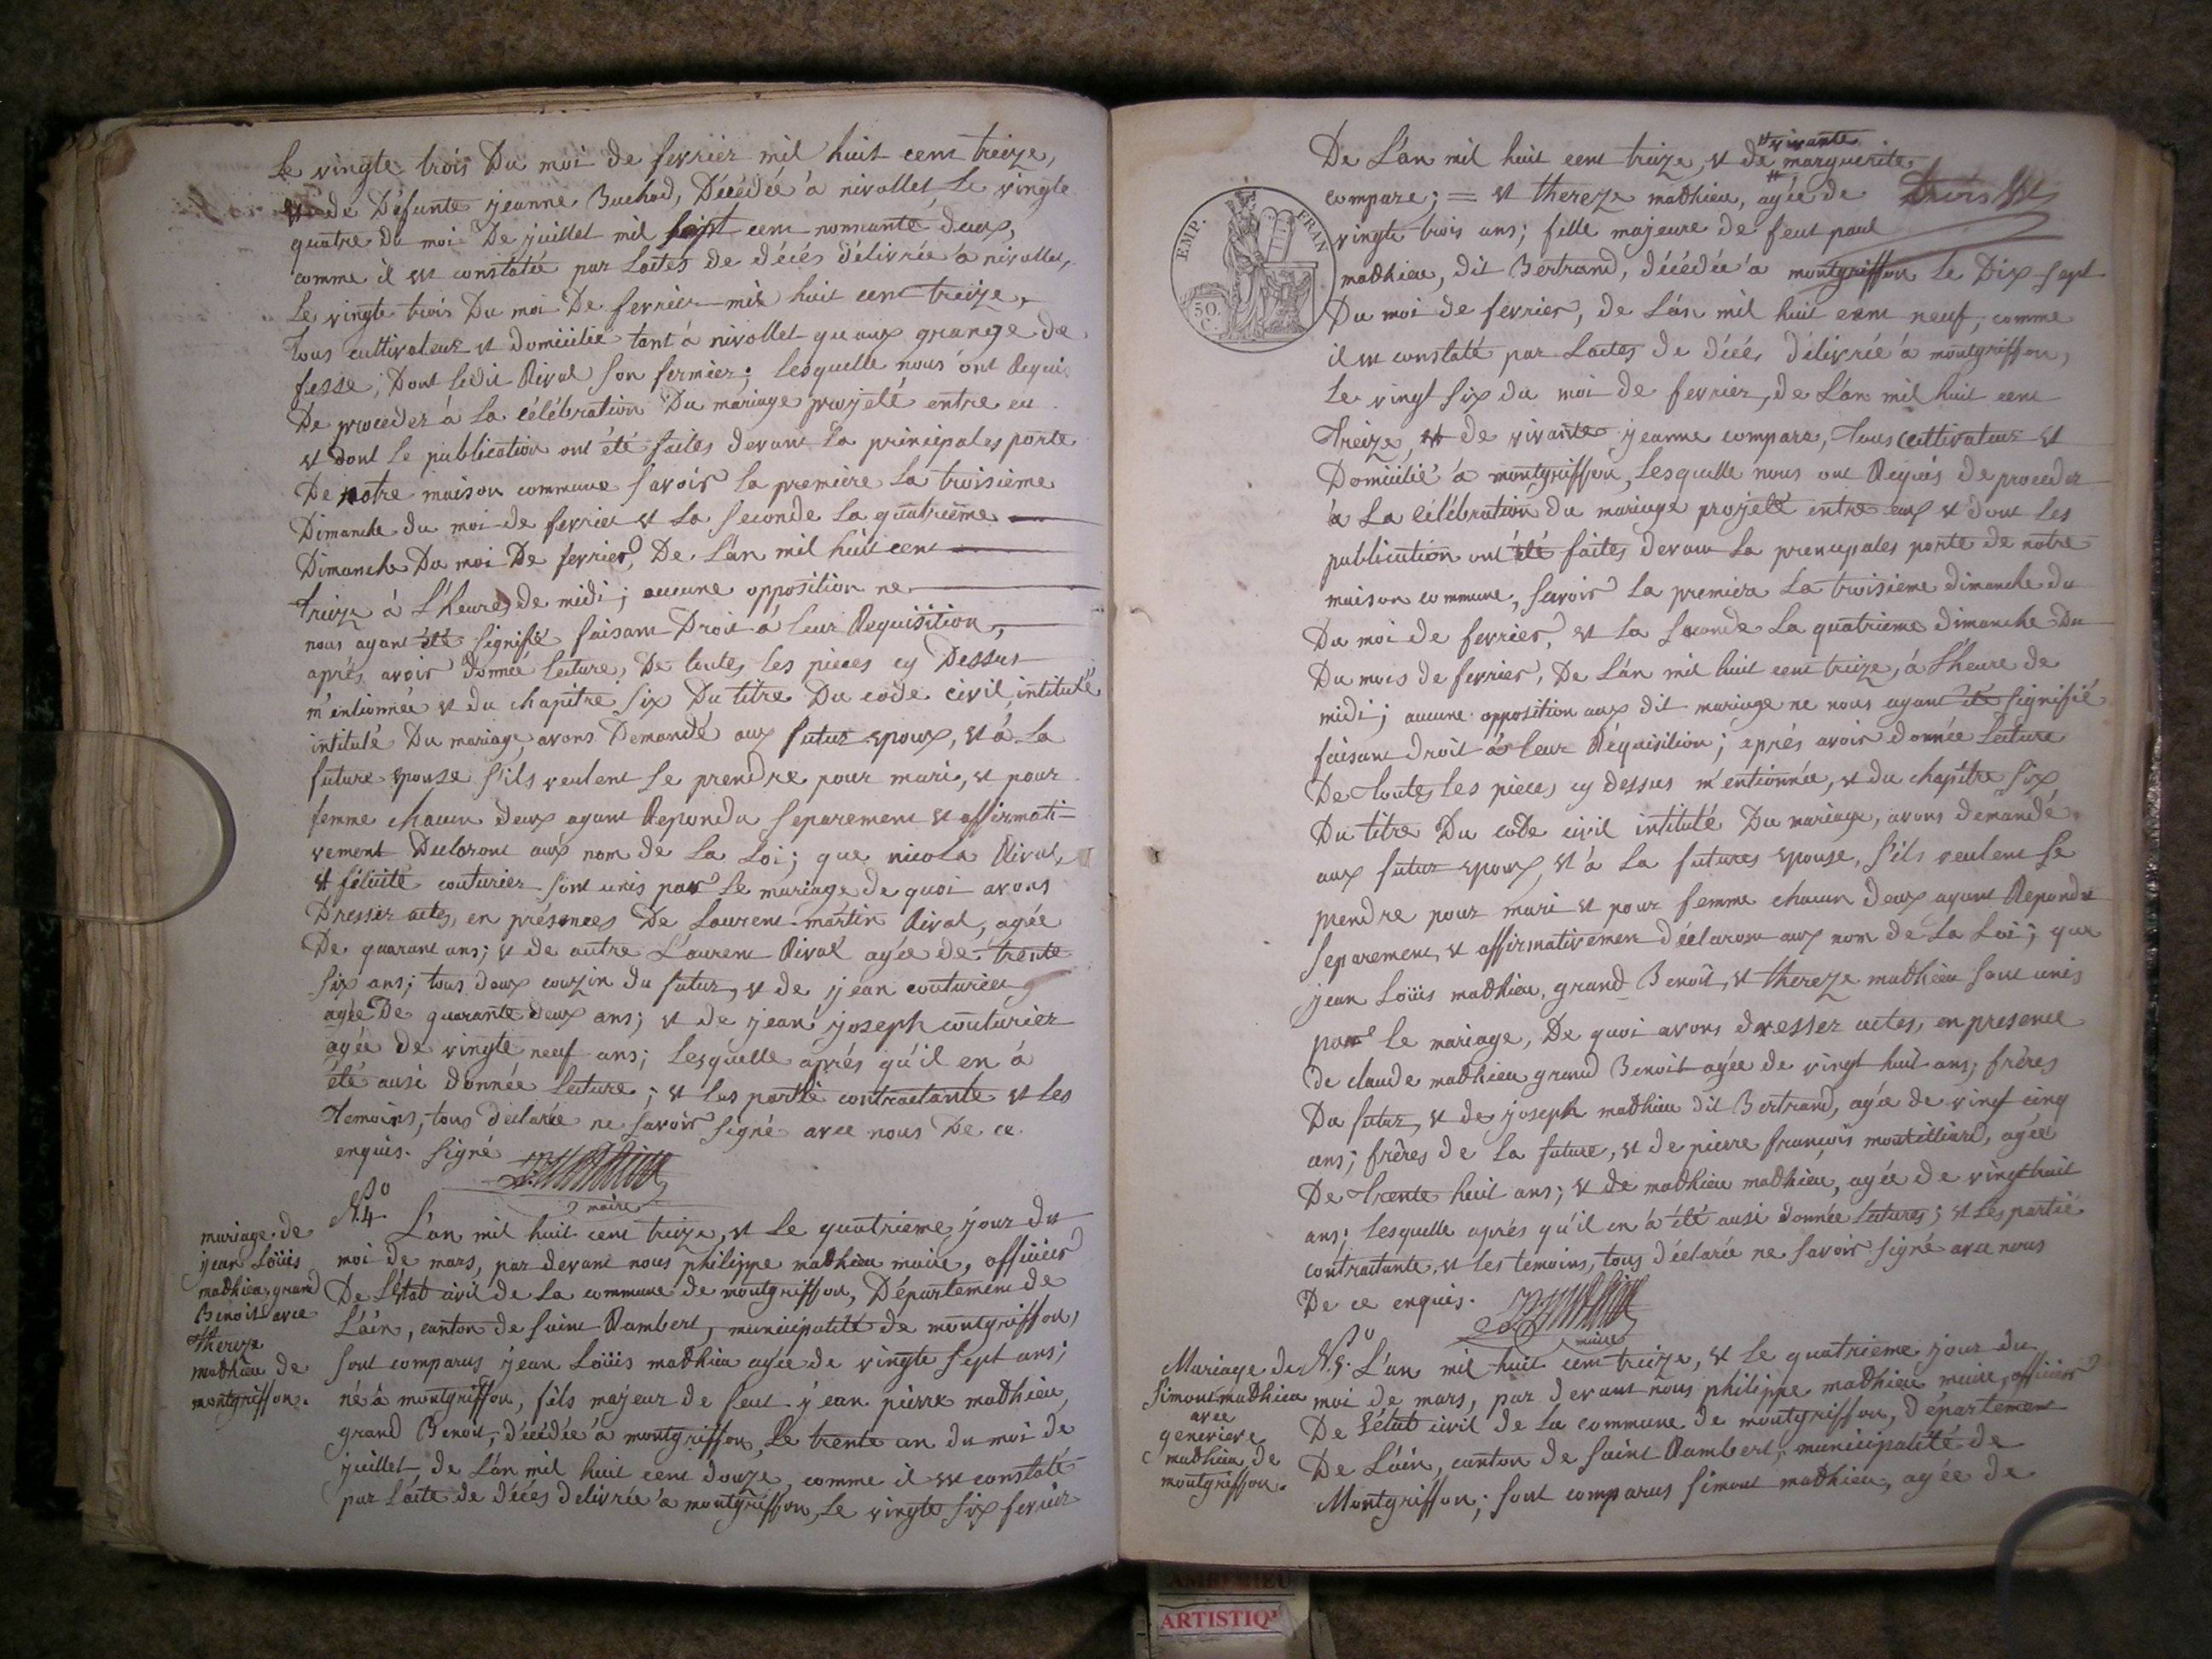 Le vingte trois Du moi de fevrier mil huit cent treize,
et de Défunte jeanne Buchod, Décédée à nivollet, Le vingte
quatre du moi De juillet mil sept cent nonnante deux,
comme il est constatée par Lactes de décés délivrée à nivollet,
Le vingte trois Du moi De fevrier mil huit cent treize,
Tous cultivateur et domicilié tant à nivollet qu aux grange de
fesse, Dont Ledit Rival son fermier; Lesquelle nous ont Requi
De proceder à La célébration Du mariage projeté entre eu
et dont Le publication ont été faites devant La principales porte
De notre maison commune savoir La première La troisième
Dimanche du moi de fevrier et La seconde La quatrième
Dimanche Du moi De fevrier, De L'an mil huit cent
treize à L'heures de midi; aucune opposition ne
nous ayant été signifié faisant Droit à leur Requisition,
aprés avoir donnée lecture, De toutes les pieces cy Dessus
m'entionnée et du chapitre six Du titre Du code civil, intitulé
intitulé Du mariage, avons Demandé aux futur epoux, et à La
future epouse s'ils veulent se prendre pour mari, et pour
femme chacun deux ayant Repondu separement et affirmati-
vement Declarons aux nom de La Loi; que nicola Rival,
et félicité couturier sont unis par Le mariage de quoi avons
Dresser actes, en présences De Laurent martin Rival, agée
De quarant ans; et de autre Laurent Rival agée de trente
six ans; tous deux couzin du futur, et de jean couturier
agée De quarante deux ans; et de jean joseph couturier
agée de vingte neuf ans; Lesquelle aprés qu'il en à
été ausi donnée Lecture; et Les partie contractante et Les
Temoins, tous declarée ne savoir signé avec nous De ce
enquis. Signé
maire
mariage de
jean Loüis
mathieu grand
Benoit avec
Thereze
mathieu de
montgriffon.
N.o 4. L'an mil huit cent treize, et Le quatrieme jour du
moi de mars, par devant nous philippe mathieu maire, officier
De L'état civil de La commune de montgriffon, Département de
L'ain, canton de saint Rambert, municipalité de montgriffon,
sont comparus jean Loüis mathieu agée de vingte sept ans;
né à montgriffon, fils majeur de feut jean pierre mathieu,
grand Benoit, décédée à montgriffon, Le trente un du moi de
juillet de L'an mil huit cent douze, comme il est constaté
par L'acte de décés delivrée à montgriffon, Le vingte six fevrier
De L'an mil huit cent treize, et de vivante marguerite
compare; = et thereze mathieu, agée de
vingte trois ans; fille majeure de feut paul
mathieu, dit Bertrand, décédée à montgriffon Le Dix sept
Du moi de fevrier, de L'an mil huit cent neuf, comme
il est constaté par Lactes de décés délivrée à montgriffon,
Le vingt six du moi de fevrier, de L'an mil huit cent
Treize, et de vivante jeanne compare, Tous cultivateur et
Domicilié à montgriffon, Lesquelle nous ont Requis de proceder
à La célébration du mariage projeté entre eux et dont Les
publication ont été faites devant La prencipales porte de notre
maison commune, savoir La premiere La troisieme dimanche du
Du moi de fevrier, et La seconde La quatrieme dimanche Du
Du mois de fevrier, De L'an mil huit cent treize, à L'heure de
midi; aucune opposition aux dit mariage ne nous ayant été signifié
faisant droit à leur Réquisition; aprés avoir donnée Lecture
De toutes Les pieces cy dessus m'entionnée, et du chapitre six
Du titre Du code civil intitulé Du mariage, avons demandé
aux futur epoux, et à La futures epouse, s'ils veulent se
prendre pour mari et pour femme chacun deux ayant Repondu
separement, et affirmativemen declarons aux nom de La Loi; que
jean Loüis mathieu, grand Benoit, et thereze mathieu sont unis
par Le mariage, De quoi avons dresser actes, en presence
de claude mathieu grand Benoit agée de vingt huit ans, frères
Du futur, et de joseph mathieu dit Bertrand, agée de vingt cinq
ans; frères de La future, et de pierre françois moutilliard, agée
De trente huit ans; et de mathieu mathieu, agée de vingt huit
ans; Lesquelle aprés qu'il en à été ausi donnée Lectures; et Les partié
contractante, et Les temoins, tous déclarée ne savoir signé avec nous
De ce enquis.
maire
Mariage de
Simont mathieu
avec
genevieve
mathieu de
montgriffon.
N.o 5. L'an mil huit cent treize, et Le quatrieme jour du
moi de mars, par devant nous philippe mathieu maire, officier
De L'état civil de La commune de montgriffon, département
De L'ain, canton de saint Rambert, municipalité de
Montgriffon; sont comparus simont mathieu, agée de
EMP. FRAN
50
C.
AMBERIEU
ARTISTIQ